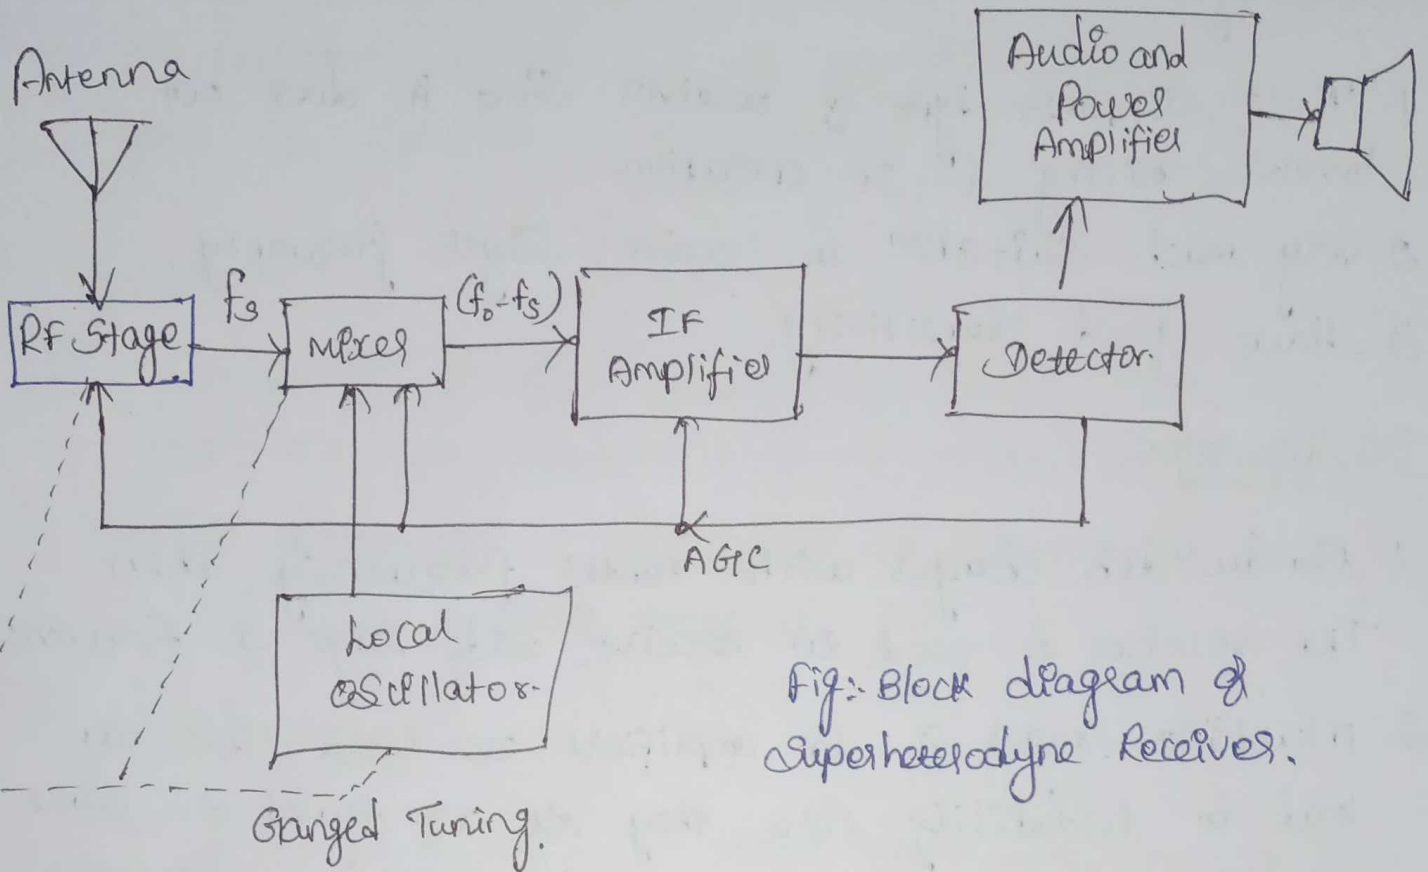 Antenna
Audio and
Power
Amplifier
RF Stage
fs
Mixer
(fo-fs)
IF
Amplifier
Detector.
AGC
Local
Oscillator.
Ganged Tuning.
Fig:- Block diagram of
Superheterodyne Receiver.